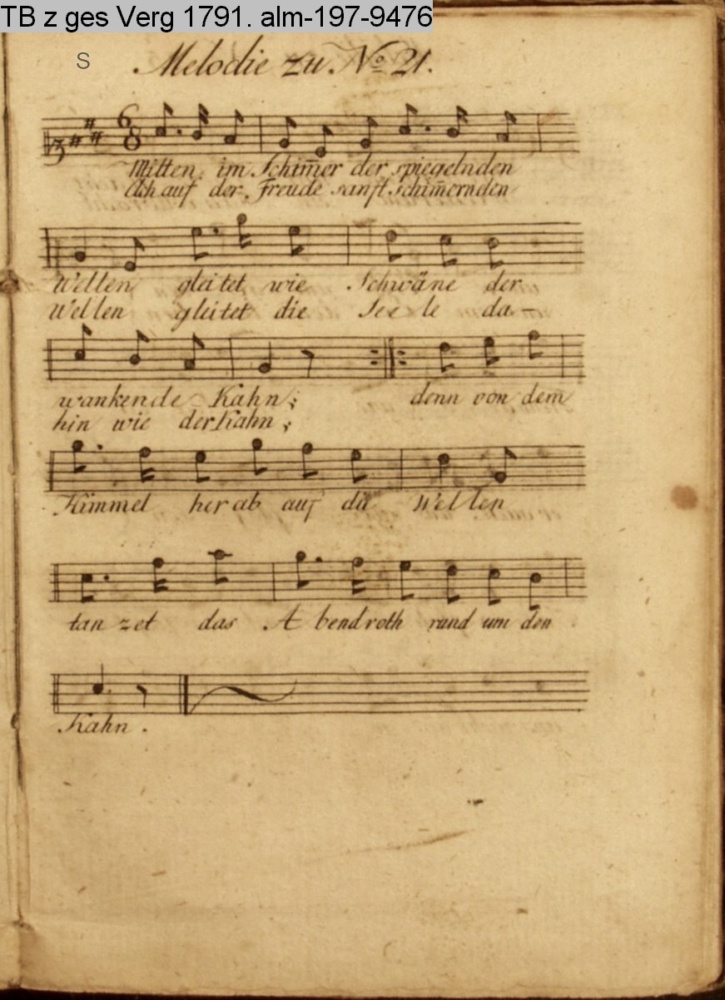 TB z ges Verg 1791. alm-197-9476
S
Melodie zu No 21.
6
8
Mitten im Schim̄er der spiegelnden
Ach auf der Freude sanft schim̄ernden
Wellen gleitet wie Schwäne der
Wellen gleitet die Seele da-
wankende Kahn;
denn von dem
hin wie der Kahn;
Himmel herab auf die Wellen
tanzet das Abendroth rund um den
Kahn.